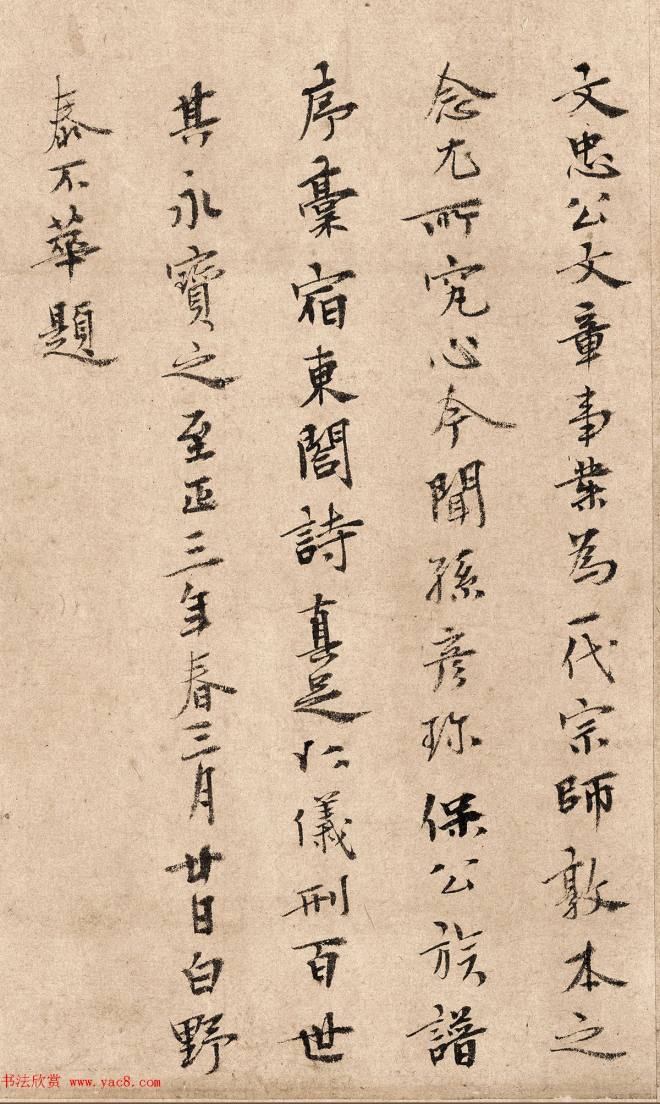 文忠公文章事業為一代宗師敦本之
念尤所究心今聞孫彥珎保公族譜
序稾宿東閤詩真足以儀刑百世
其永寶之至正三年春三月廿日白野
泰不華題
书法欣赏 www.yac8.com